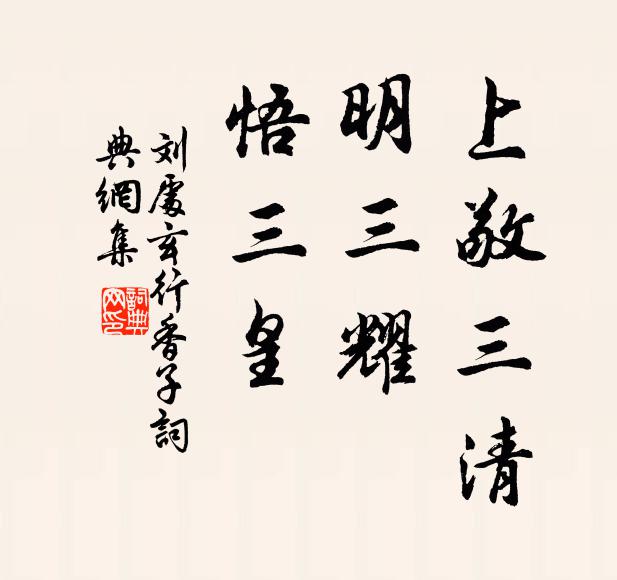 上敬三清
明三耀
悟三皇
刘處玄行香子詞
典網集
詞典
网印